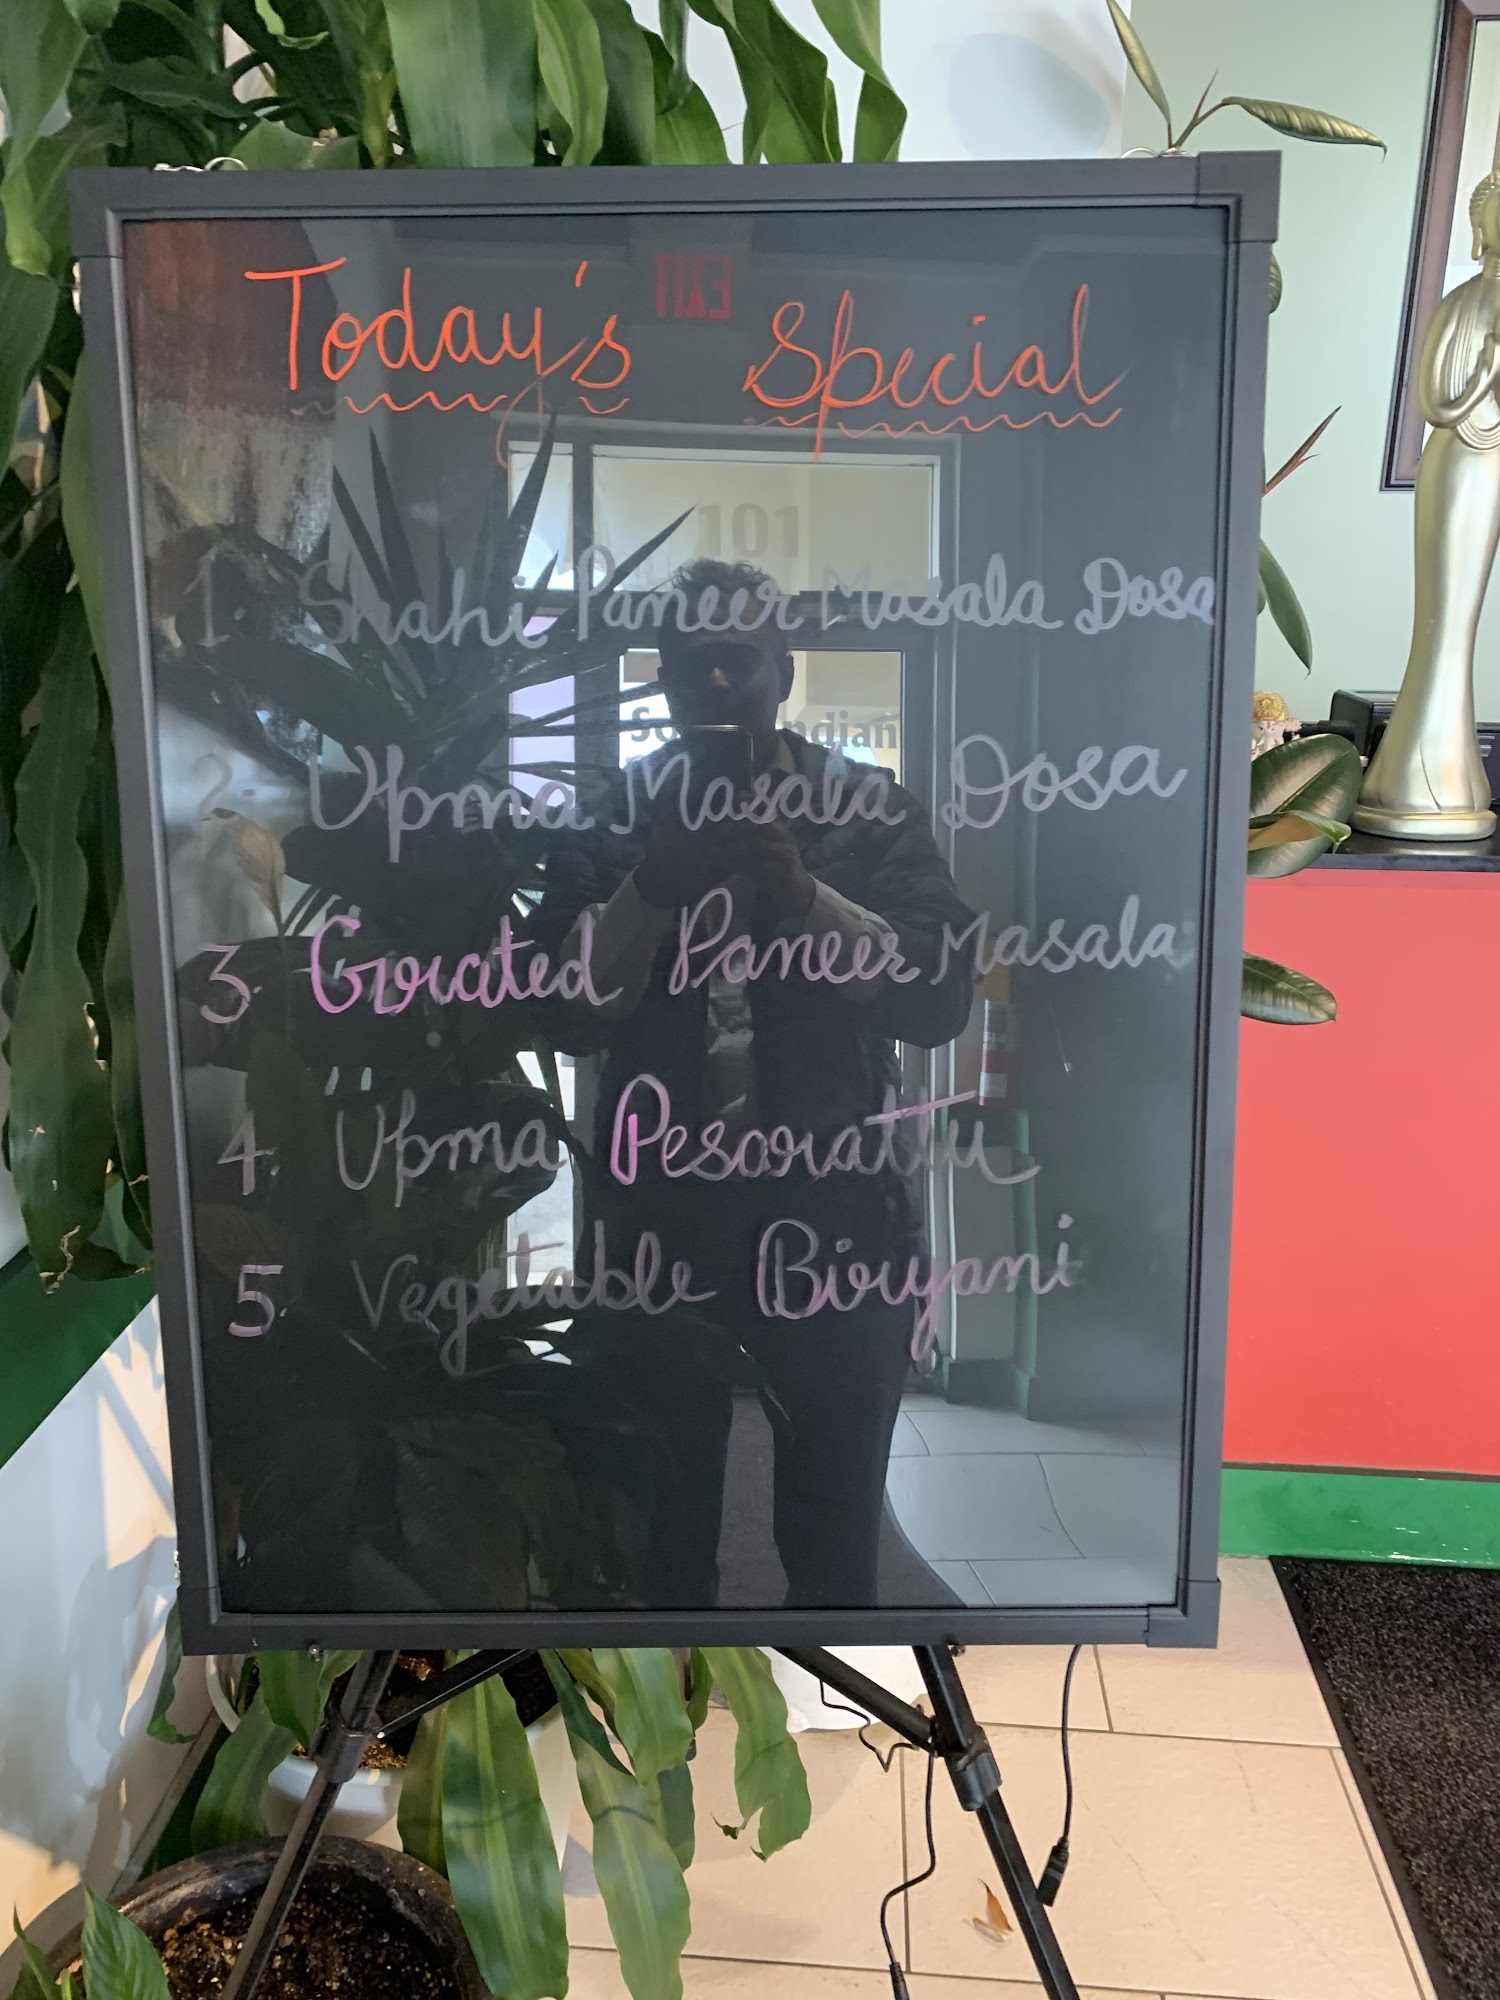 Today's Special
EXIT
101
Indian
1. Shahi Paneer Masala Dosa
2. Upma Masala Dosa
3. Grated Paneer Masala
4. Upma Pesarattu
5. Vegetable Biryani